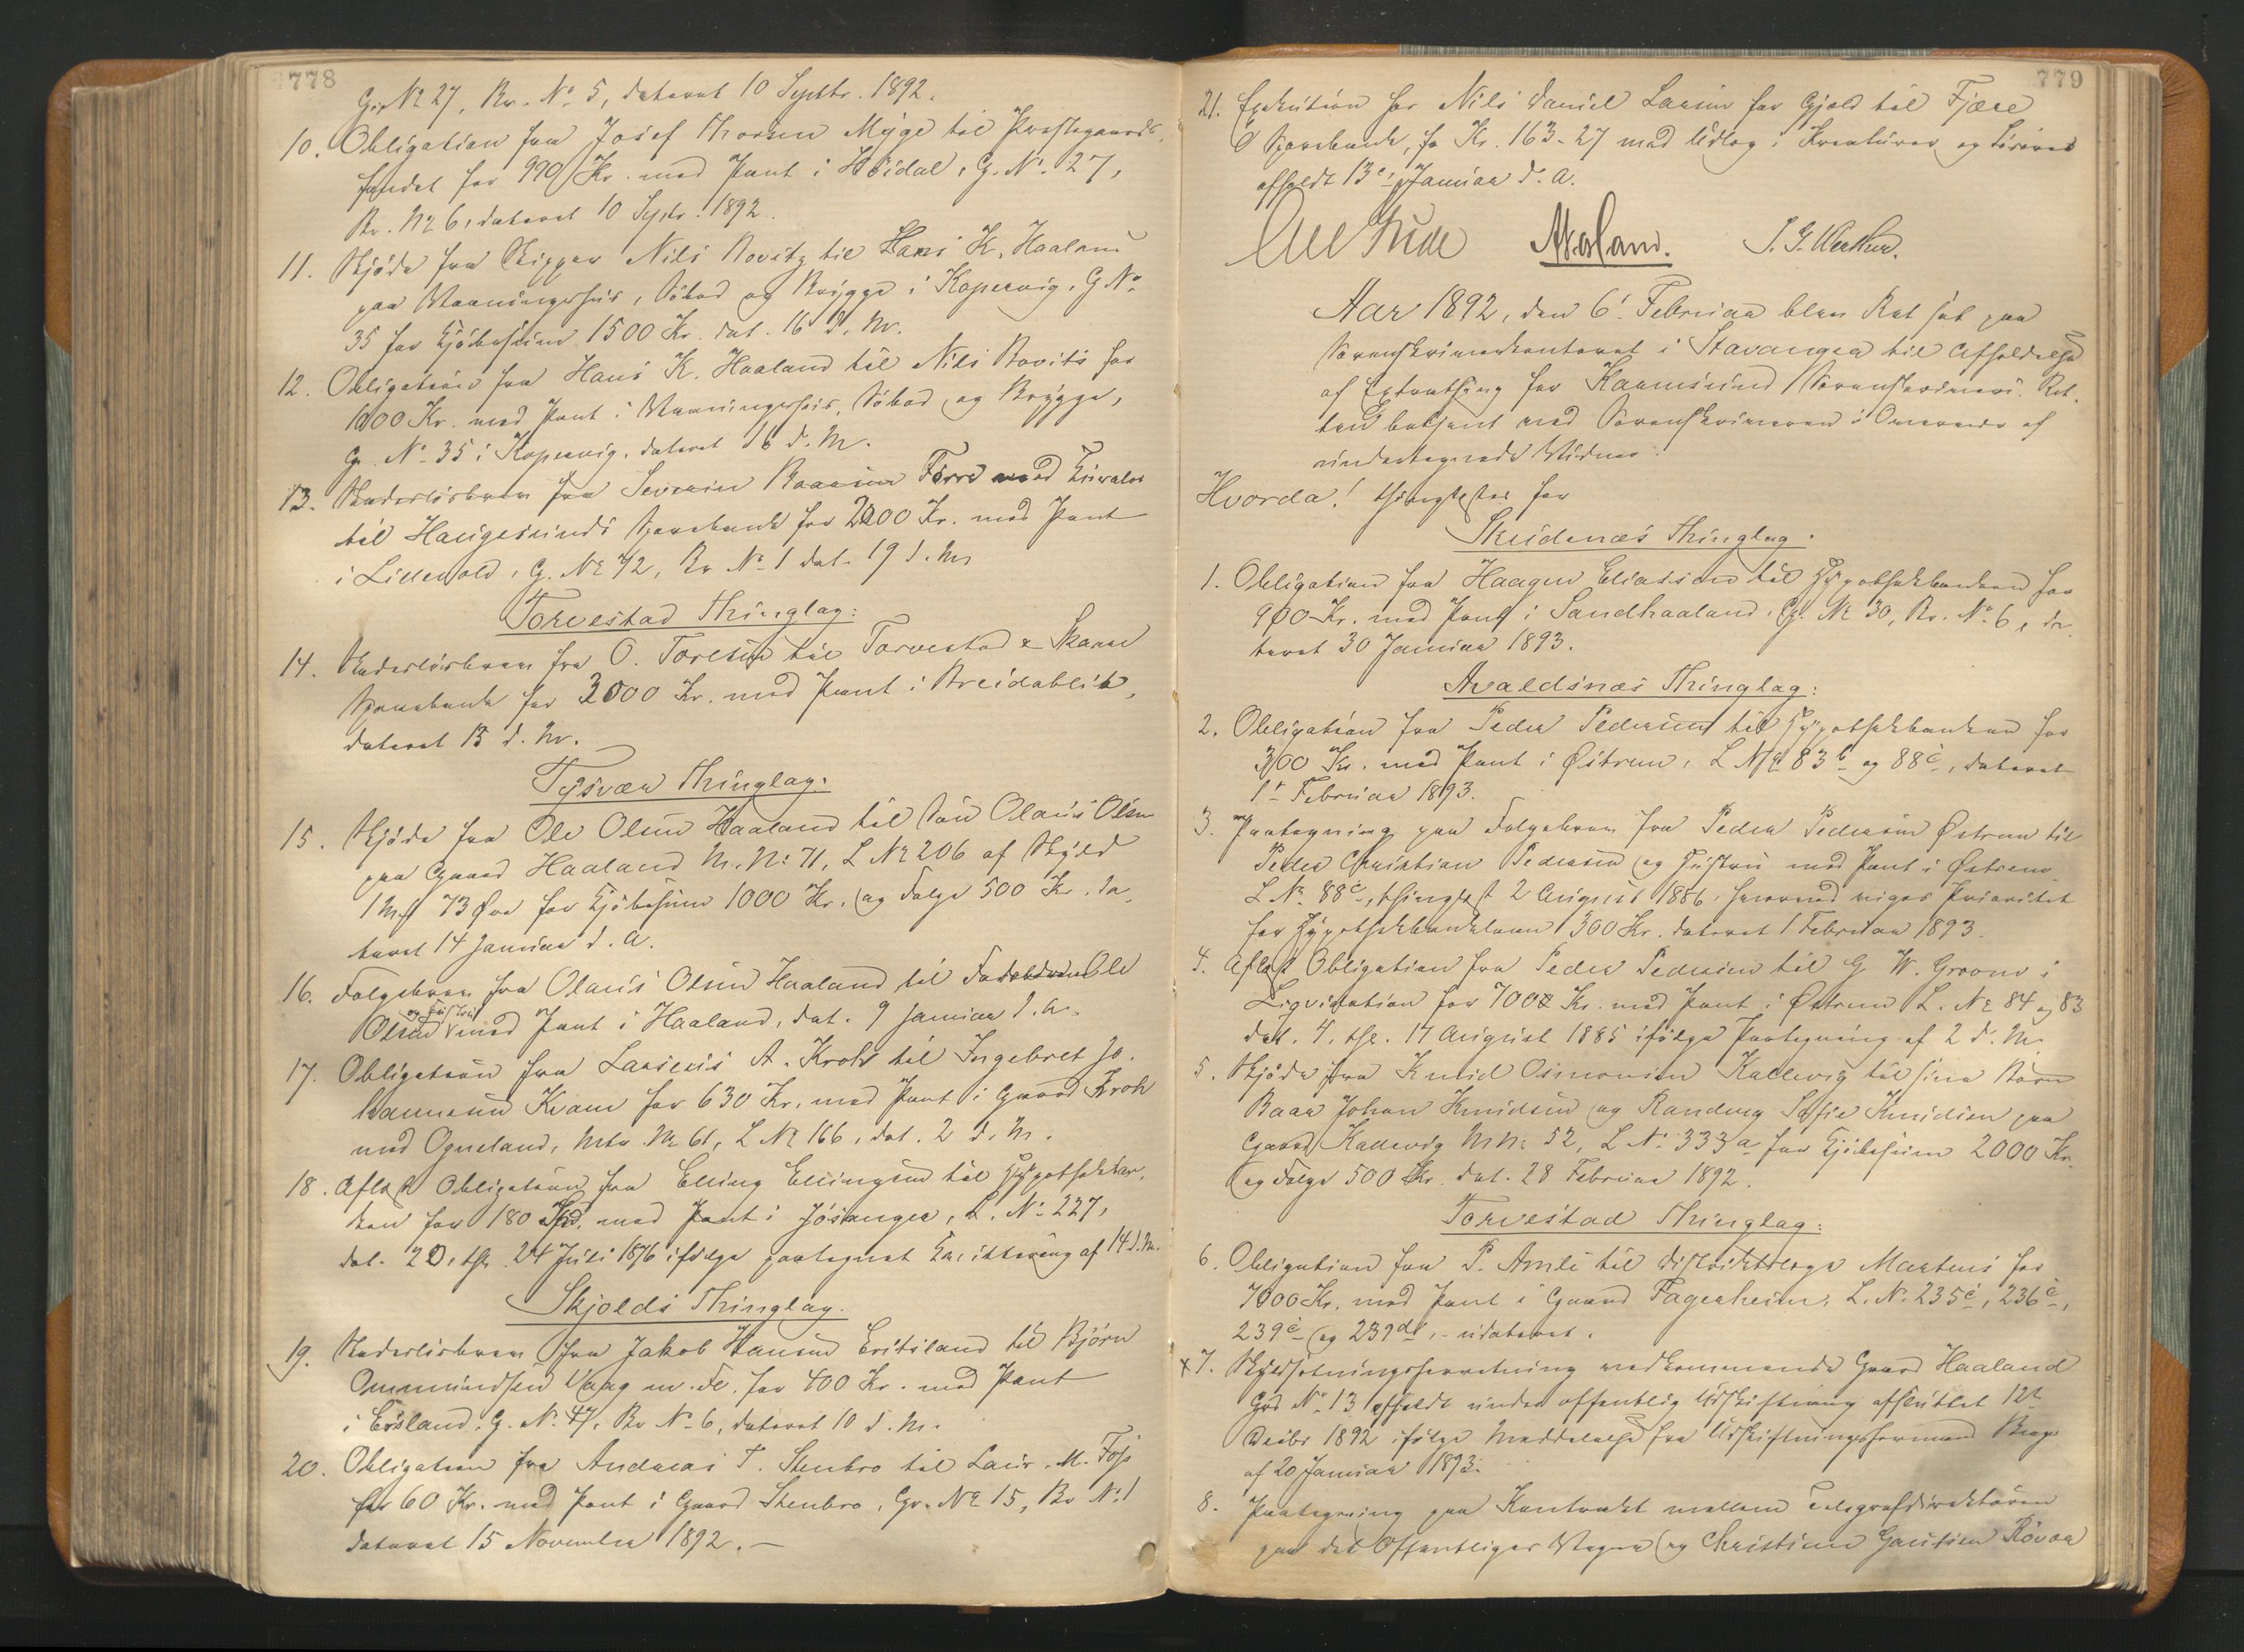 778
G. № 27, Br. No 5, dateret 10 Septbr. 1892.
10. Obligation fra Josef Thorsen Myge til Præstegaards-
fondet for 990 Kr. med Pant i Höidal, G. No 27,
Br. № 6, dateret 10 Septr. 1892.
11. Skjöde fra Skipper Nils Rovitz til Hans K. Haaland
paa Vaaningshus, Söbod og Brygge i Kopervig, G No
35 for Kjöbesum 1500 Kr. dat. 16 d. M.
12. Obligation fra Hans K. Haaland til Nils Rovits for
1000 Kr. med Pant i Vaaningshus, Söbod og Brygge,
G. No 35 i Kopervig, dateret 16 d. M.
13. Skadeslösbrev fra Severin Förre med
til Haugesunds Sparebank for 2000 Kr. med Pant
i G. № 42, Br No 1 dat. 19 d. M.
Torvestad Thinglag:
14. Skadeslösbrev fra O. til Torvestad & Skaare
Sparebank for 3000 Kr. med Pant i Breidablik,
dateret 13 d. M.
Tysvær Thinglag:
15. Skjöde fra Ole Olsen Haaland til Sön Olaus Olsen
paa Gaard Haaland M. No 71, L № 206 af Skyld
1 Mrk 73 Øre for Kjöbesum 1000 Kr. og Folge 500 Kr. da-
teret 14 Januar d. A.
16. Folgebrev fra Olaus Olsen Haaland til Ole
Olsen og Hustru med Pant i Haaland, dat. 9 Januar d. A.
17. Obligation fra A. Kroh til Ingebret Jo-
hannesen Kvam for 630 Kr. med Pant i Gaard Kroh
med Ogneland, Mtr. № 61, L № 166, dat. 2 d. M.
18. Aflæst Obligation fra Elling Ellingsen til Hypothekban-
ken for 180 Spd. med Pant i Jösanger, L. No 227,
dat. 20, thl. 24 Juli 1876 ifölge paategnet Kvittering af 14 d. M.
Skjolds Thinglag.
19. Skadeslösbrev fra Jakob Hansen til Björn
Ommundsen Vaag m. Fl. for 400 Kr. med Pant
i G. No 47, Br No 6, dateret 10 d. M.
20. Obligation fra Andreas T. Stenbro til Laur. M.
for 60 Kr. med Pant i Gaard Stenbro, Gr. № 15, Br No 1
dateret 15 November 1892.—
779
21. Exekution hos Nils Daniel Larsen for Gjæld til
Sparebank, for Kr. 163-27 med Udlæg i Kreaturer og Lösöre
afholdt 13de Januar d. A.
Aar 1892, den 6' Februar blev Ret sat paa
Sorenskriverkontoret i Stavanger til Afholdelse
af Extrathing for Karmsund Sorenskriveri. Ret-
ten betjent med Sorenskriveren i Overvær af
undertegnede Vidner.
Hvorda! thinglæstes for
Skudenæs Thinglag.
1. Obligation fra Haagen Eliassen til Hypothekbanken for
900 Kr. med Pant i Sandhaaland, G. № 30, Br. No 6, da-
teret 30 Januar 1893.
Avaldsnæs Thinglag:
2. Obligation fra Peder Pedersen til Hypothekbanken for
300 Kr. med Pant i Østrem, L № 83b og 88c, dateret
1ste Februar 1893.
3. Paategning paa Folgebrev fra Peder Pedersen Østrem til
Peder Christian Pedersen og Hustru med Pant i Østrem
L No 88c, thinglæst 2 August 1886, hvorved viges Prioritet
for Hypothekbanklaan 300 Kr. dateret 1 Februar 1893.
4. Aflæst Obligation fra Peder Pedersen til G W. i
Liqvidation for 7002 Kr. med Pant i Østrem L. № 84 og 83
dat. 4, thl. 17 August 1885 ifölge Paategning af 2 d. M.
5. Skjöde fra Knud Osmonsen Kallevig til sine Börn
Baar Johan Knudsen og Randvig Sofie Knudsen paa
Gaard Kallevig M № 52, L No 333a for Kjöbesum 2000 Kr.
og Folge 500 Kr. dat. 28 Februar 1892.
Torvestad Thinglag:
6. Obligation fra P. Amli til Distriktslæge Martens for
7000 Kr. med Pant i Gaard Fagerheim, L. No 235c, 236c,
239c og 239d, - udateret.
x 7. Skyldsætningsforretning vedkommende Gaard Haaland
Grd No 13 afholdt under offentlig Udskiftning afsluttet 12te
Decbr 1892 ifölge Meddelelse fra Udskiftningsformand
af 20 Januar 1893.
8. Paategning paa Kontrakt mellem Telegrafdirektören
paa det Offentliges Vegne og Christian Gautsen Rövær